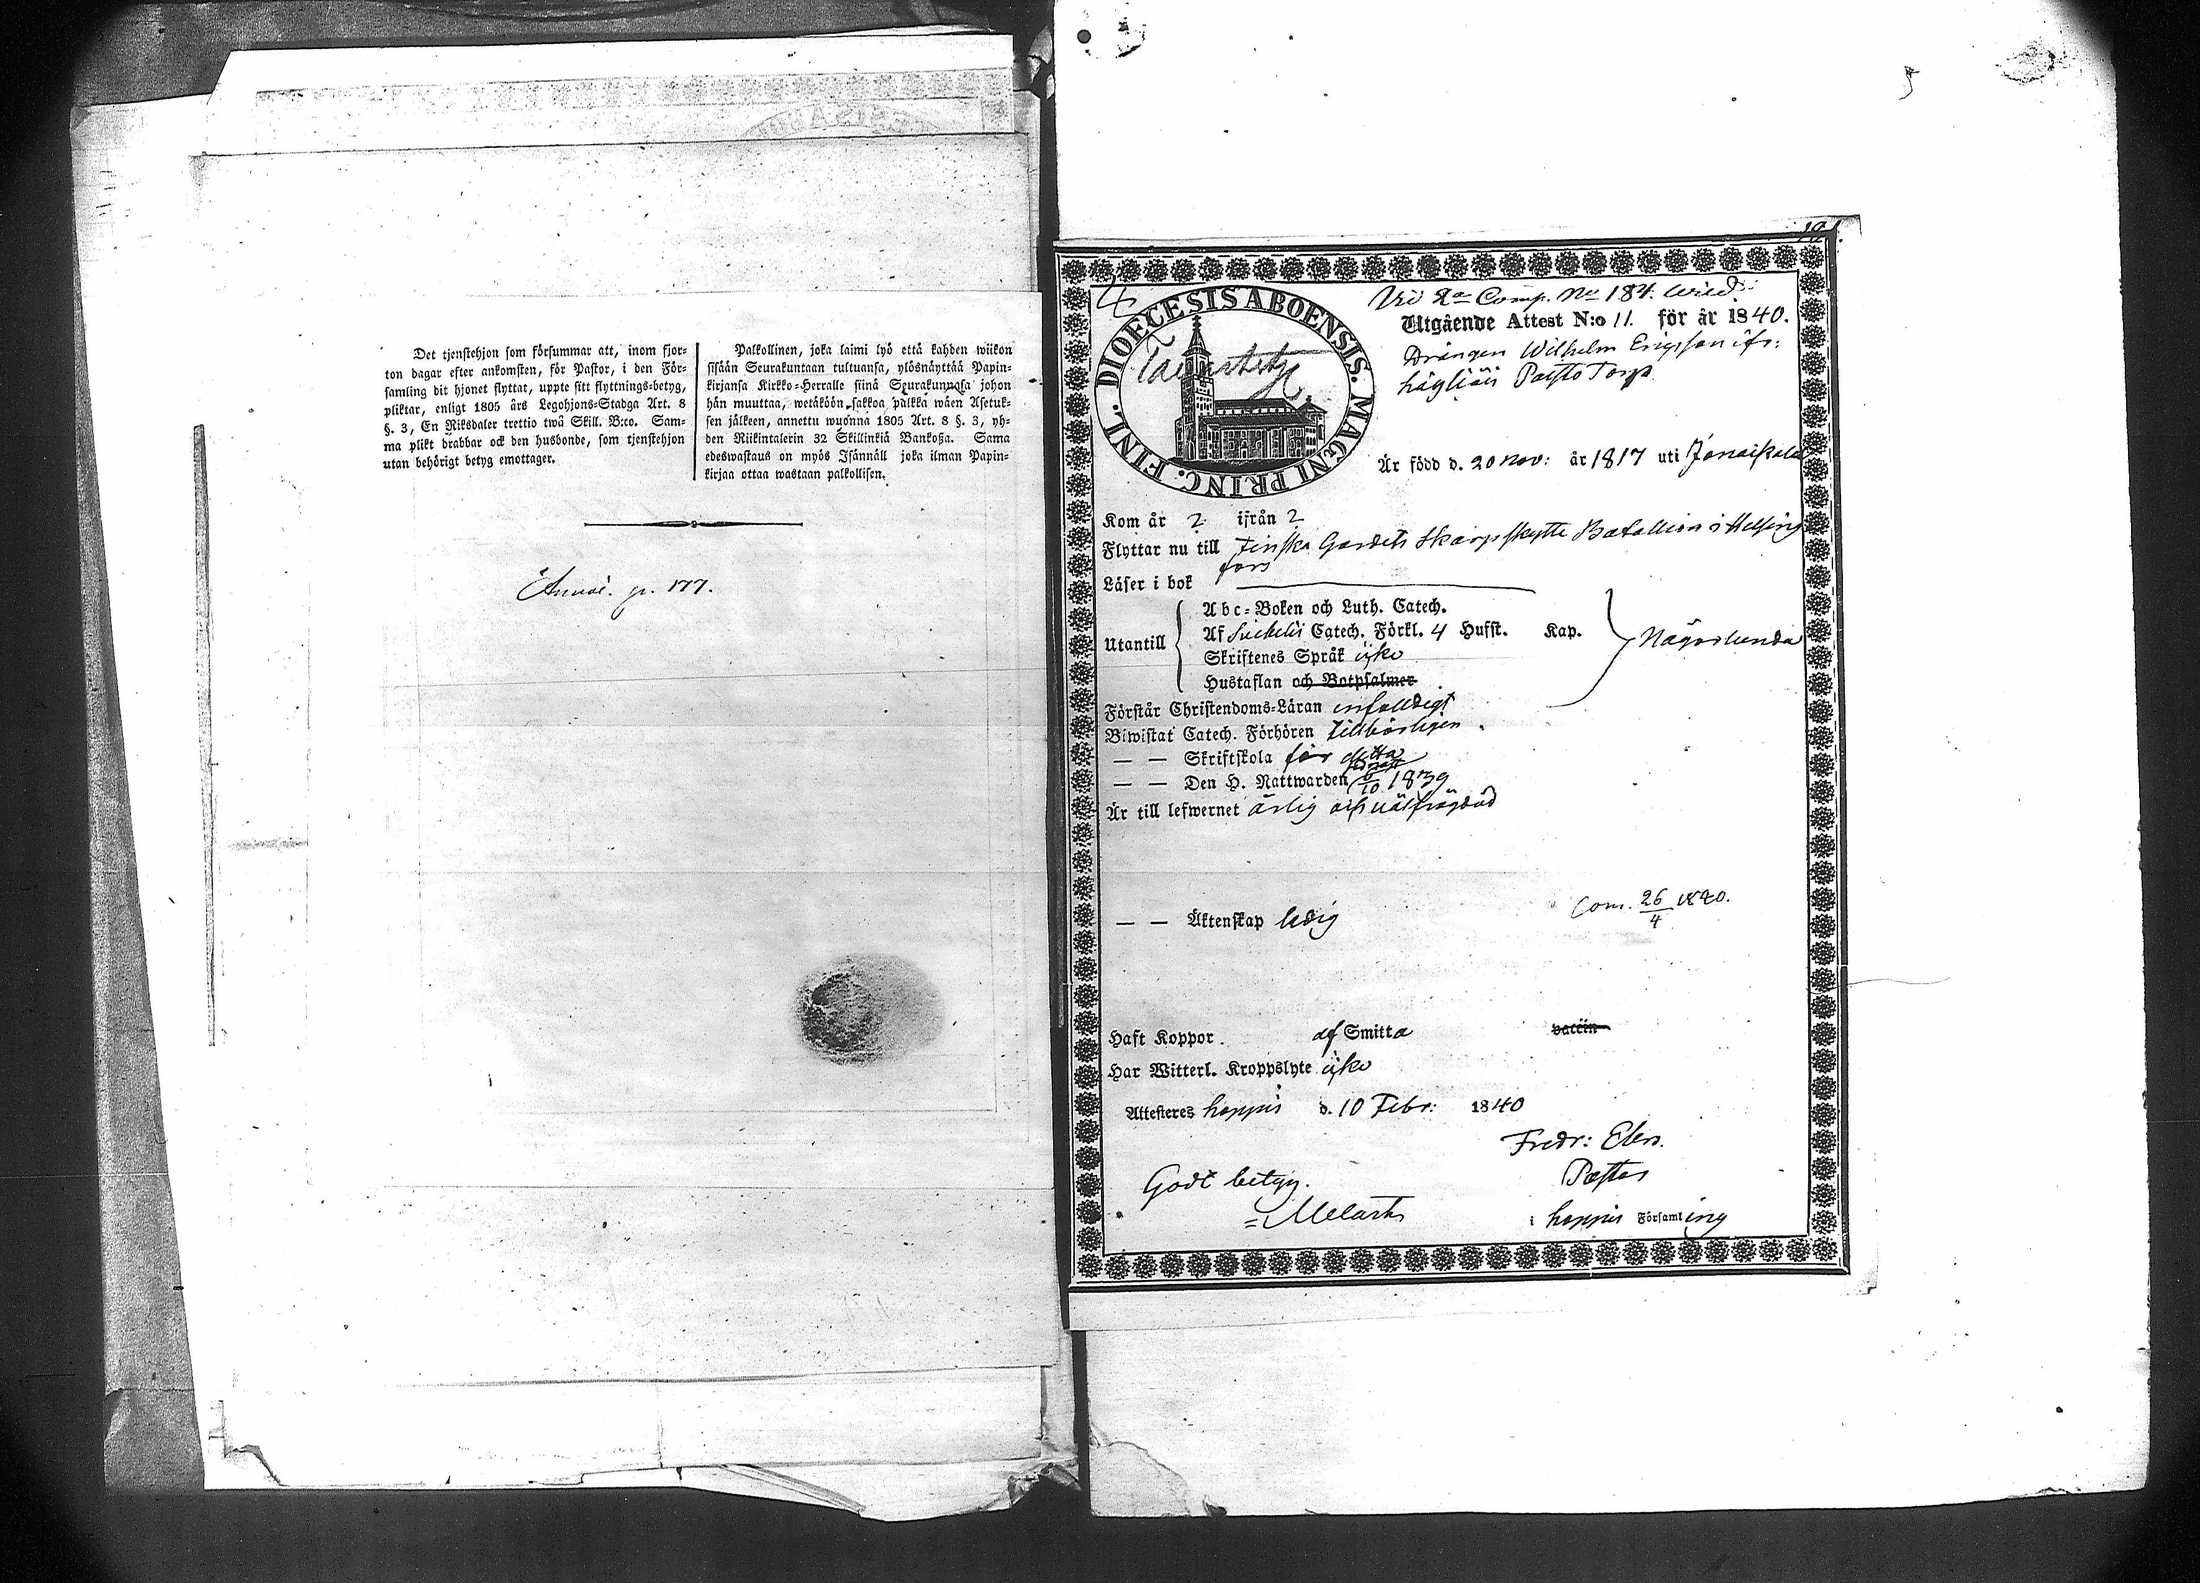 Det tjenstehjon som försummar att, inom fjor-
ton dagar efter ankomsten, för Pastor, i den För-
samling dit hjonet flyttat, uppte sitt flyttnings-betyg,
pliktar, enligt 1805 års Legohjons-Stadga Art. 8
§. 3, En Riksdaler trettio twå Skill. B:co. Sam-
ma plikt drabbar ock den husbonde, som tjenstehjon
utan behörigt betyg emottager.
Palkollinen, joka laimi lyö että kahden wiikon
sisään Seurakuntaan tultuansa, ylösnäyttää Papin-
kirjansa Kirkko-Herralle siinä Seurakunnasa johon
hän muuttaa, wetäköön sakkoa palkka wäen Asetuk-
sen jälkeen, annettu wuonna 1805 Art. 8 §. 3, yh-
den Riikintalerin 32 Skillinkiä Bankoßa. Sama
edeswastaus on myös Isännäll joka ilman Papin-
kirjaa ottaa wastaan palkollisen.
pr. 177.
5
DIOECESIS ABOENSIS. MAGNI PRINC. FINL.
Comp. No 184.
Utgående Attest N:o 11. för år 1840.
Drängen Wilhelm Ericsson ifr:
Torp
Är född d. 20 Nov: år 1817 uti Janakkala
Kom år 2 ifrån 2
Flyttar nu till Finska Gardets Skarpskytte Batallion i Helsing
fors
Läser i bok
Utantill
Abc-Boken och Luth. Catech.
Af Catech. Förkl. 4 Hufst. Kap.
Skriftenes Språk icke
Hustaflan och Botpsalmer
Någorlunda
Förstår Christendoms-Läran enfaldigt
Biwistat Catech. Förhören tillbörligen
— — Skriftskola för detta
— — Den H. Nattwarden 6/10 1839
Är till lefwernet ärlig och välfrägdad
— — Äktenskap ledig
Com. 26/4 1840.
Haft Koppor. af Smitta vaccin
Har Witterl. Kroppslyte icke
Attesteres Loppis d. 10 Febr: 1840
Fredr: Elers.
Pastor
Godt betyg.
i Loppis Församling